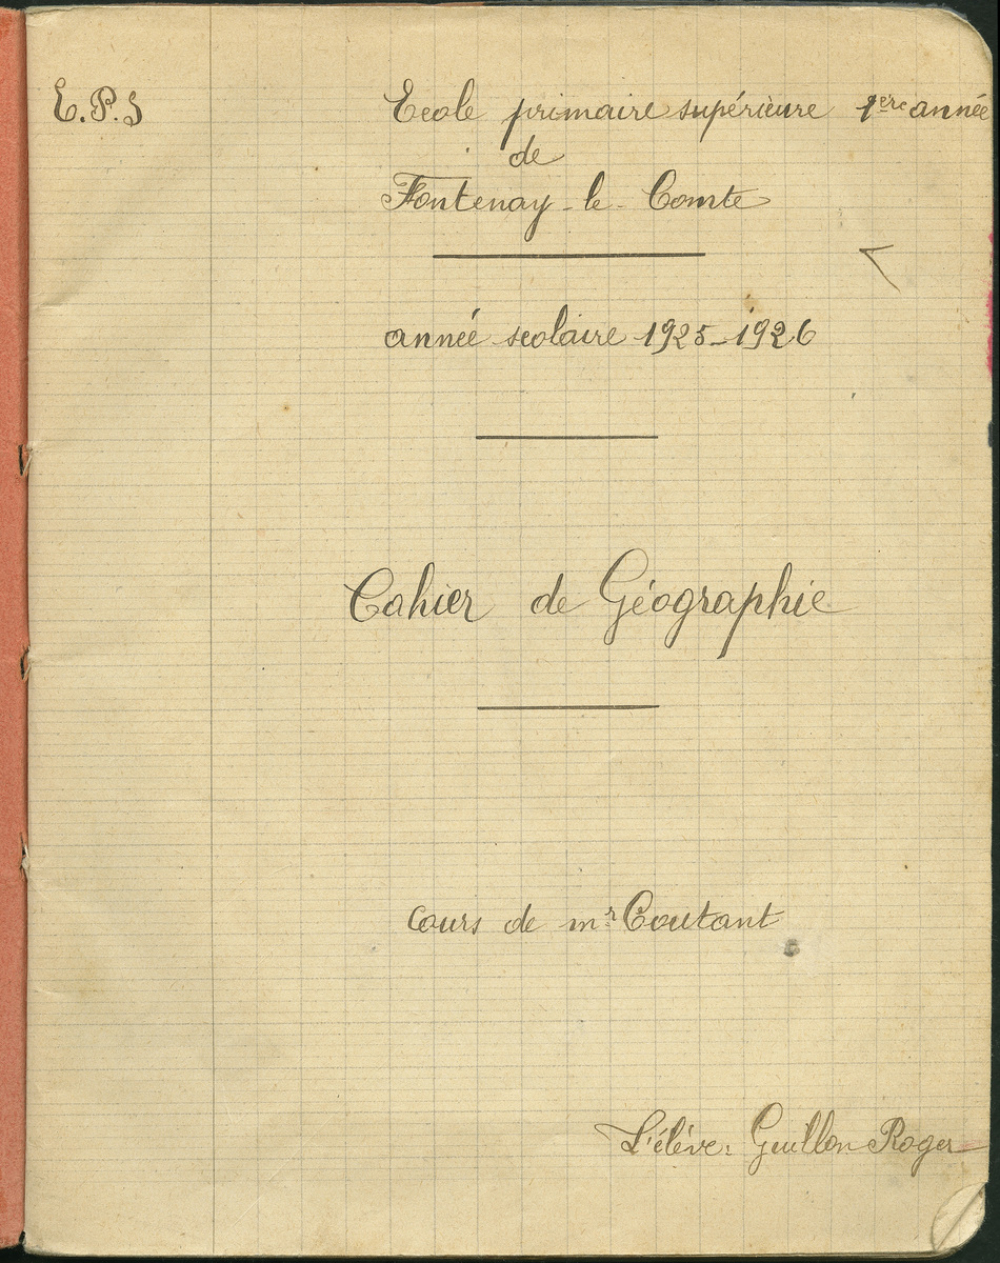 E.P.S
Ecole primaire supérieure 1ère année
de
Fontenay-le-Comte
année scolaire 1925-1926
Cahier de Géographie
Cours de mr Coutant
L'élève: Guillon Roger